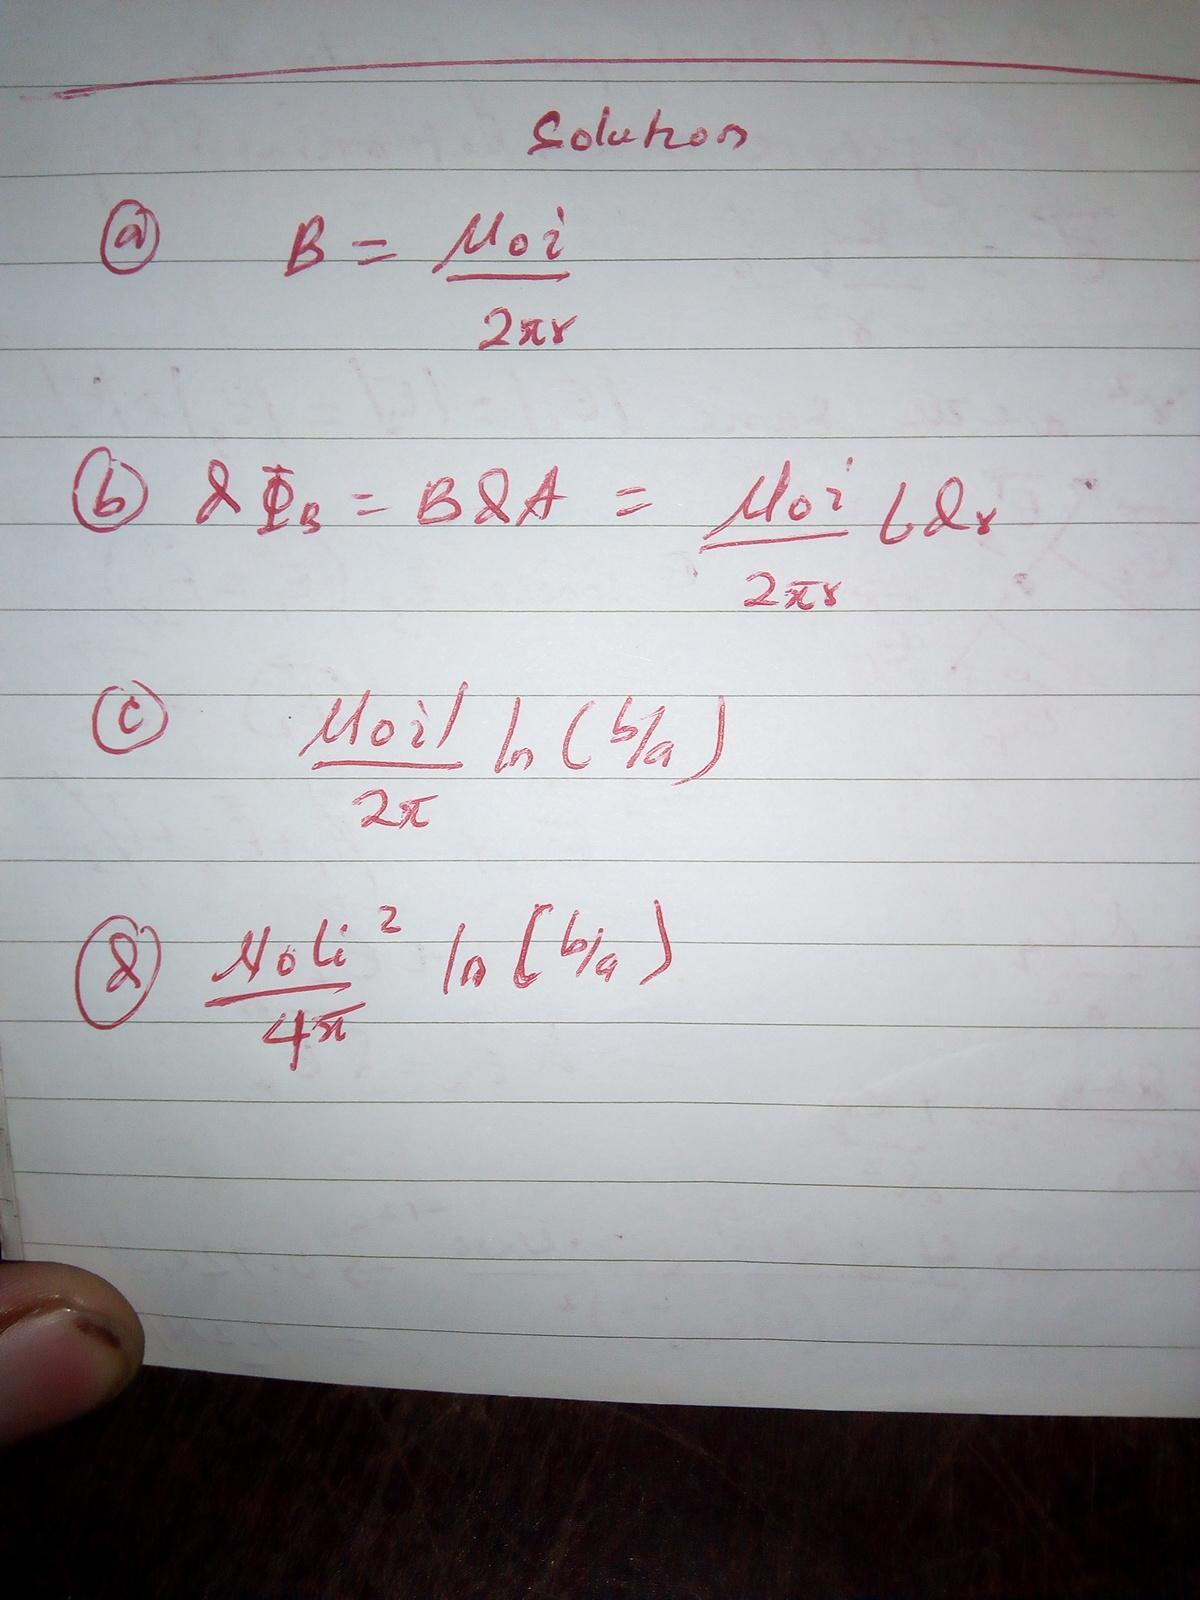 Solution
(a) B = μ₀i / 2πr
(b) dΦ_B = BdA = μ₀i / 2πr ldr
(c) μ₀il / 2π ln (b/a)
(d) μ₀li² / 4π ln (b/a)